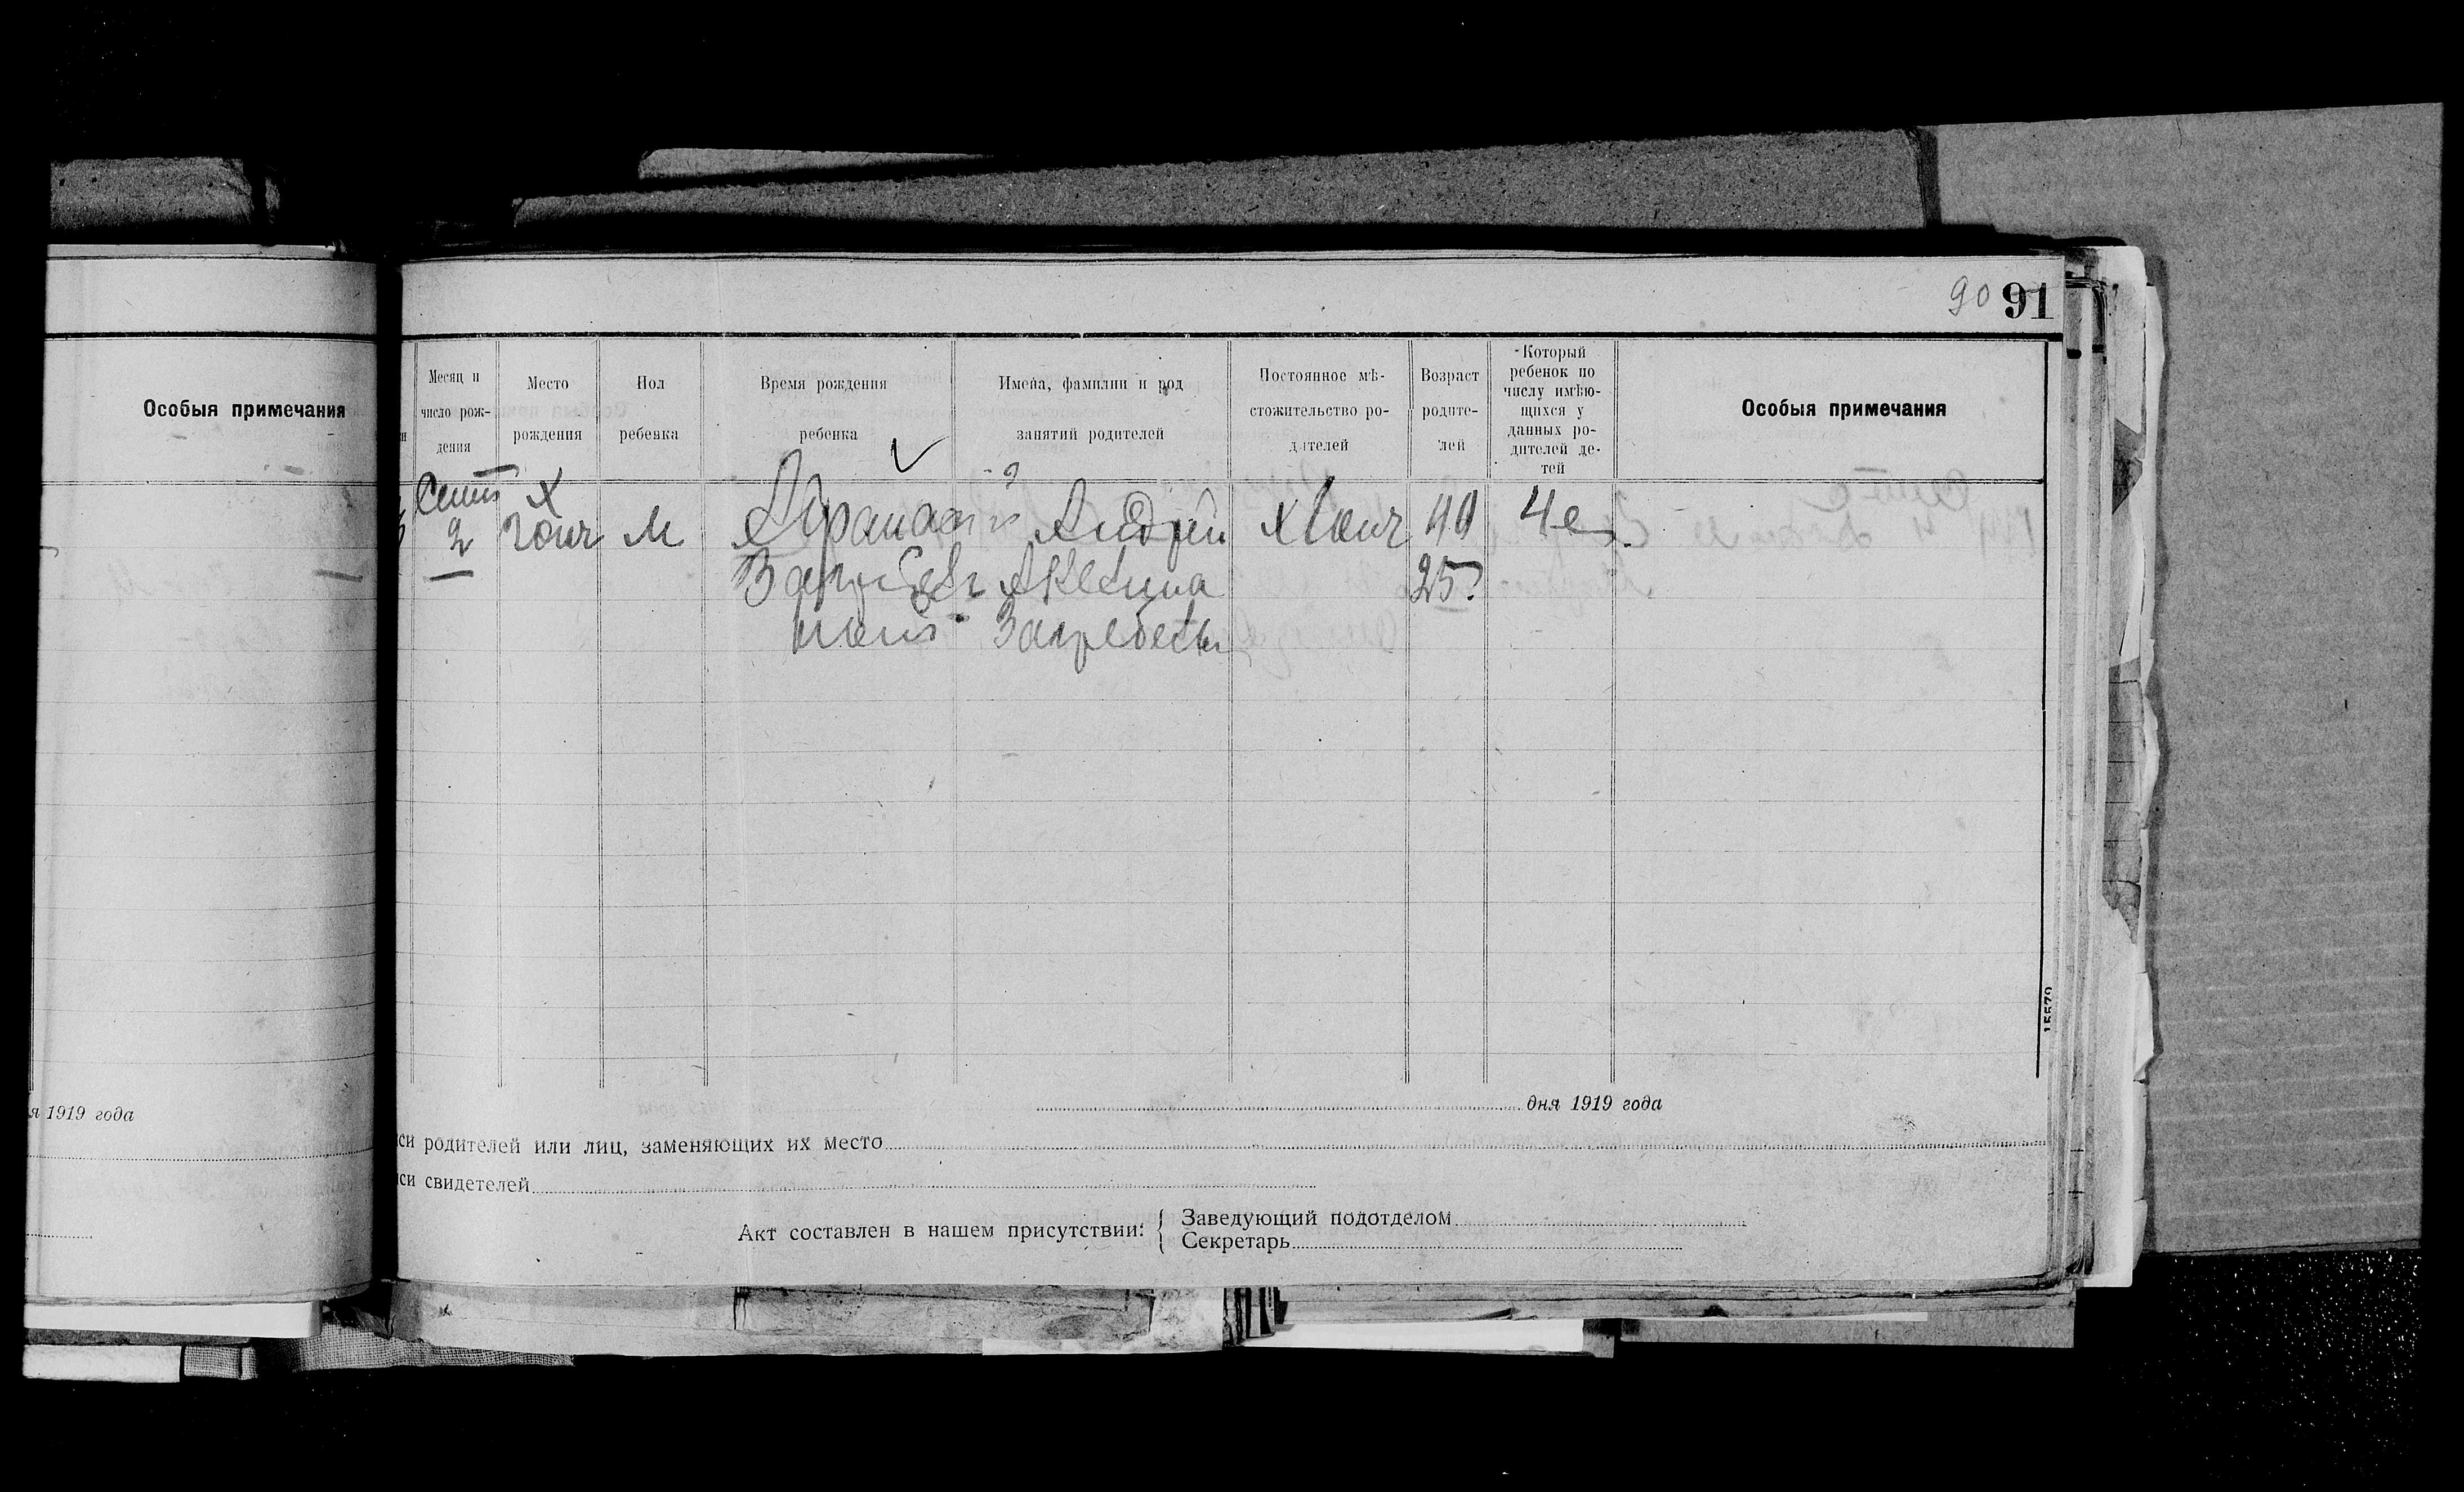 90 91
Особыя примечания
Месяц и
число рож-
дения
Место
рождения
Пол
ребенка
Время рождения
ребенка
Имена, фамилии и род
занятий родителей
Постоянное мѣ-
стожительство ро-
дителей
Возраст
родите-
лей
Который
ребенок по
числу имѣю-
щихся у
данных ро-
дителей де-
тей
Особыя примечания
Сент
2
х
М
Афанасий
Андрей
40
4е
25
я 1919 года
дня 1919 года
си родителей или лиц, заменяющих их место
си свидетелей
Акт составлен в нашем присутствии:
Заведующий подотделом
Секретарь
15579